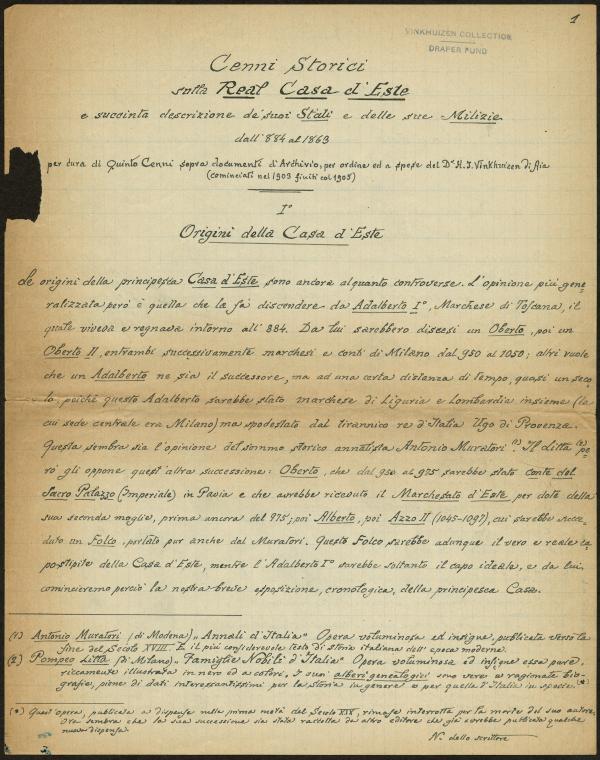 1
VINKHUIZEN COLLECTION
DRAPER FUND
Cenni Storici
sulla Real Casa d'Este
e succinta descrizione de' suoi Stati e delle sue Milizie
dall' 884 al 1863
per cura di Quinto Cenni sopra documenti d'Archivio, per ordine ed a spese del Dr. H. J. Vinkhuizen di Aia
(cominciati nel 1903 finiti col 1905)
I°
Origini della Casa d'Este
Le origini della principesca Casa d'Este sono ancora alquanto controverse. L'opinione più gene=
ralizzata però è quella che la fa discendere da Adalberto I°, Marchese di Toscana, il
quale viveva e regnava intorno all' 884. Da lui sarebbero discesi un Oberto, poi un
Oberto II, entrambi successivamente marchesi e conti di Milano dal 950 al 1050; altri vuole
che un Adalberto ne sia il successore, ma ad una certa distanza di tempo, quasi un seco=
lo, poichè questo Adalberto sarebbe stato marchese di Liguria e Lombardia insieme (la
cui sede centrale era Milano) ma spodestato dal tirannico re d'Italia Ugo di Provenza.
Questa sembra sia l'opinione del sommo storico annalista Antonio Muratori (1). Il Litta (2) pe=
rò gli oppone quest'altra successione: Oberto, che dal 950 al 975 sarebbe stato conte del
Sacro Palazzo (Imperiale) in Pavia e che avrebbe ricevuto il Marchesato d'Este per dote della
sua seconda moglie, prima ancora del 975; poi Alberto, poi Azzo II (1045-1097), cui sarebbe succe=
duto un Folco, portato pur anche dal Muratori. Questo Folco sarebbe adunque il vero e reale ca=
postipite della Casa d'Este, mentre l'Adalberto I° sarebbe soltanto il capo ideale, e da lui
cominceremo perciò la nostra breve esposizione, cronologica, della principesca Casa.
(1) Antonio Muratori (di Modena) „Annali d'Italia" Opera voluminosa ed insigne, pubblicata verso la
fine del Secolo XVIII. È il più considerevole testo di storia italiana dell' epoca moderna.
(2) Pompeo Litta (di Milano) „Famiglie Nobili d'Italia" Opera voluminosa ed insigne essa pure,
riccamente illustrata in nero ed a colori. I suoi alberi genealogici sono vere e ragionate bio=
grafie, piene di dati interessantissimi per la storia in genere e per quella d'Italia in specie. (*)
(*) Quest'opera, pubblicata a dispense nella prima metà del Secolo XIX, rimase interrotta per la morte del suo autore.
Ora sembra che la sua successione sia stata raccolta da altro editore che già avrebbe pubblicata qualche
nuova dispensa.
N. dello scrittore